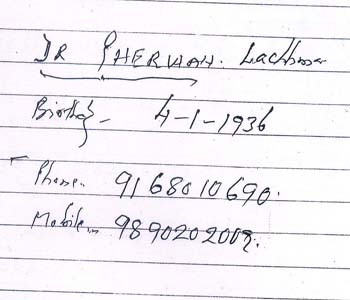 DR GHERWAH. Lachhman
Birthday - 4-1-1936
Phone. 9168010690.
Mobile.. 9890202009.